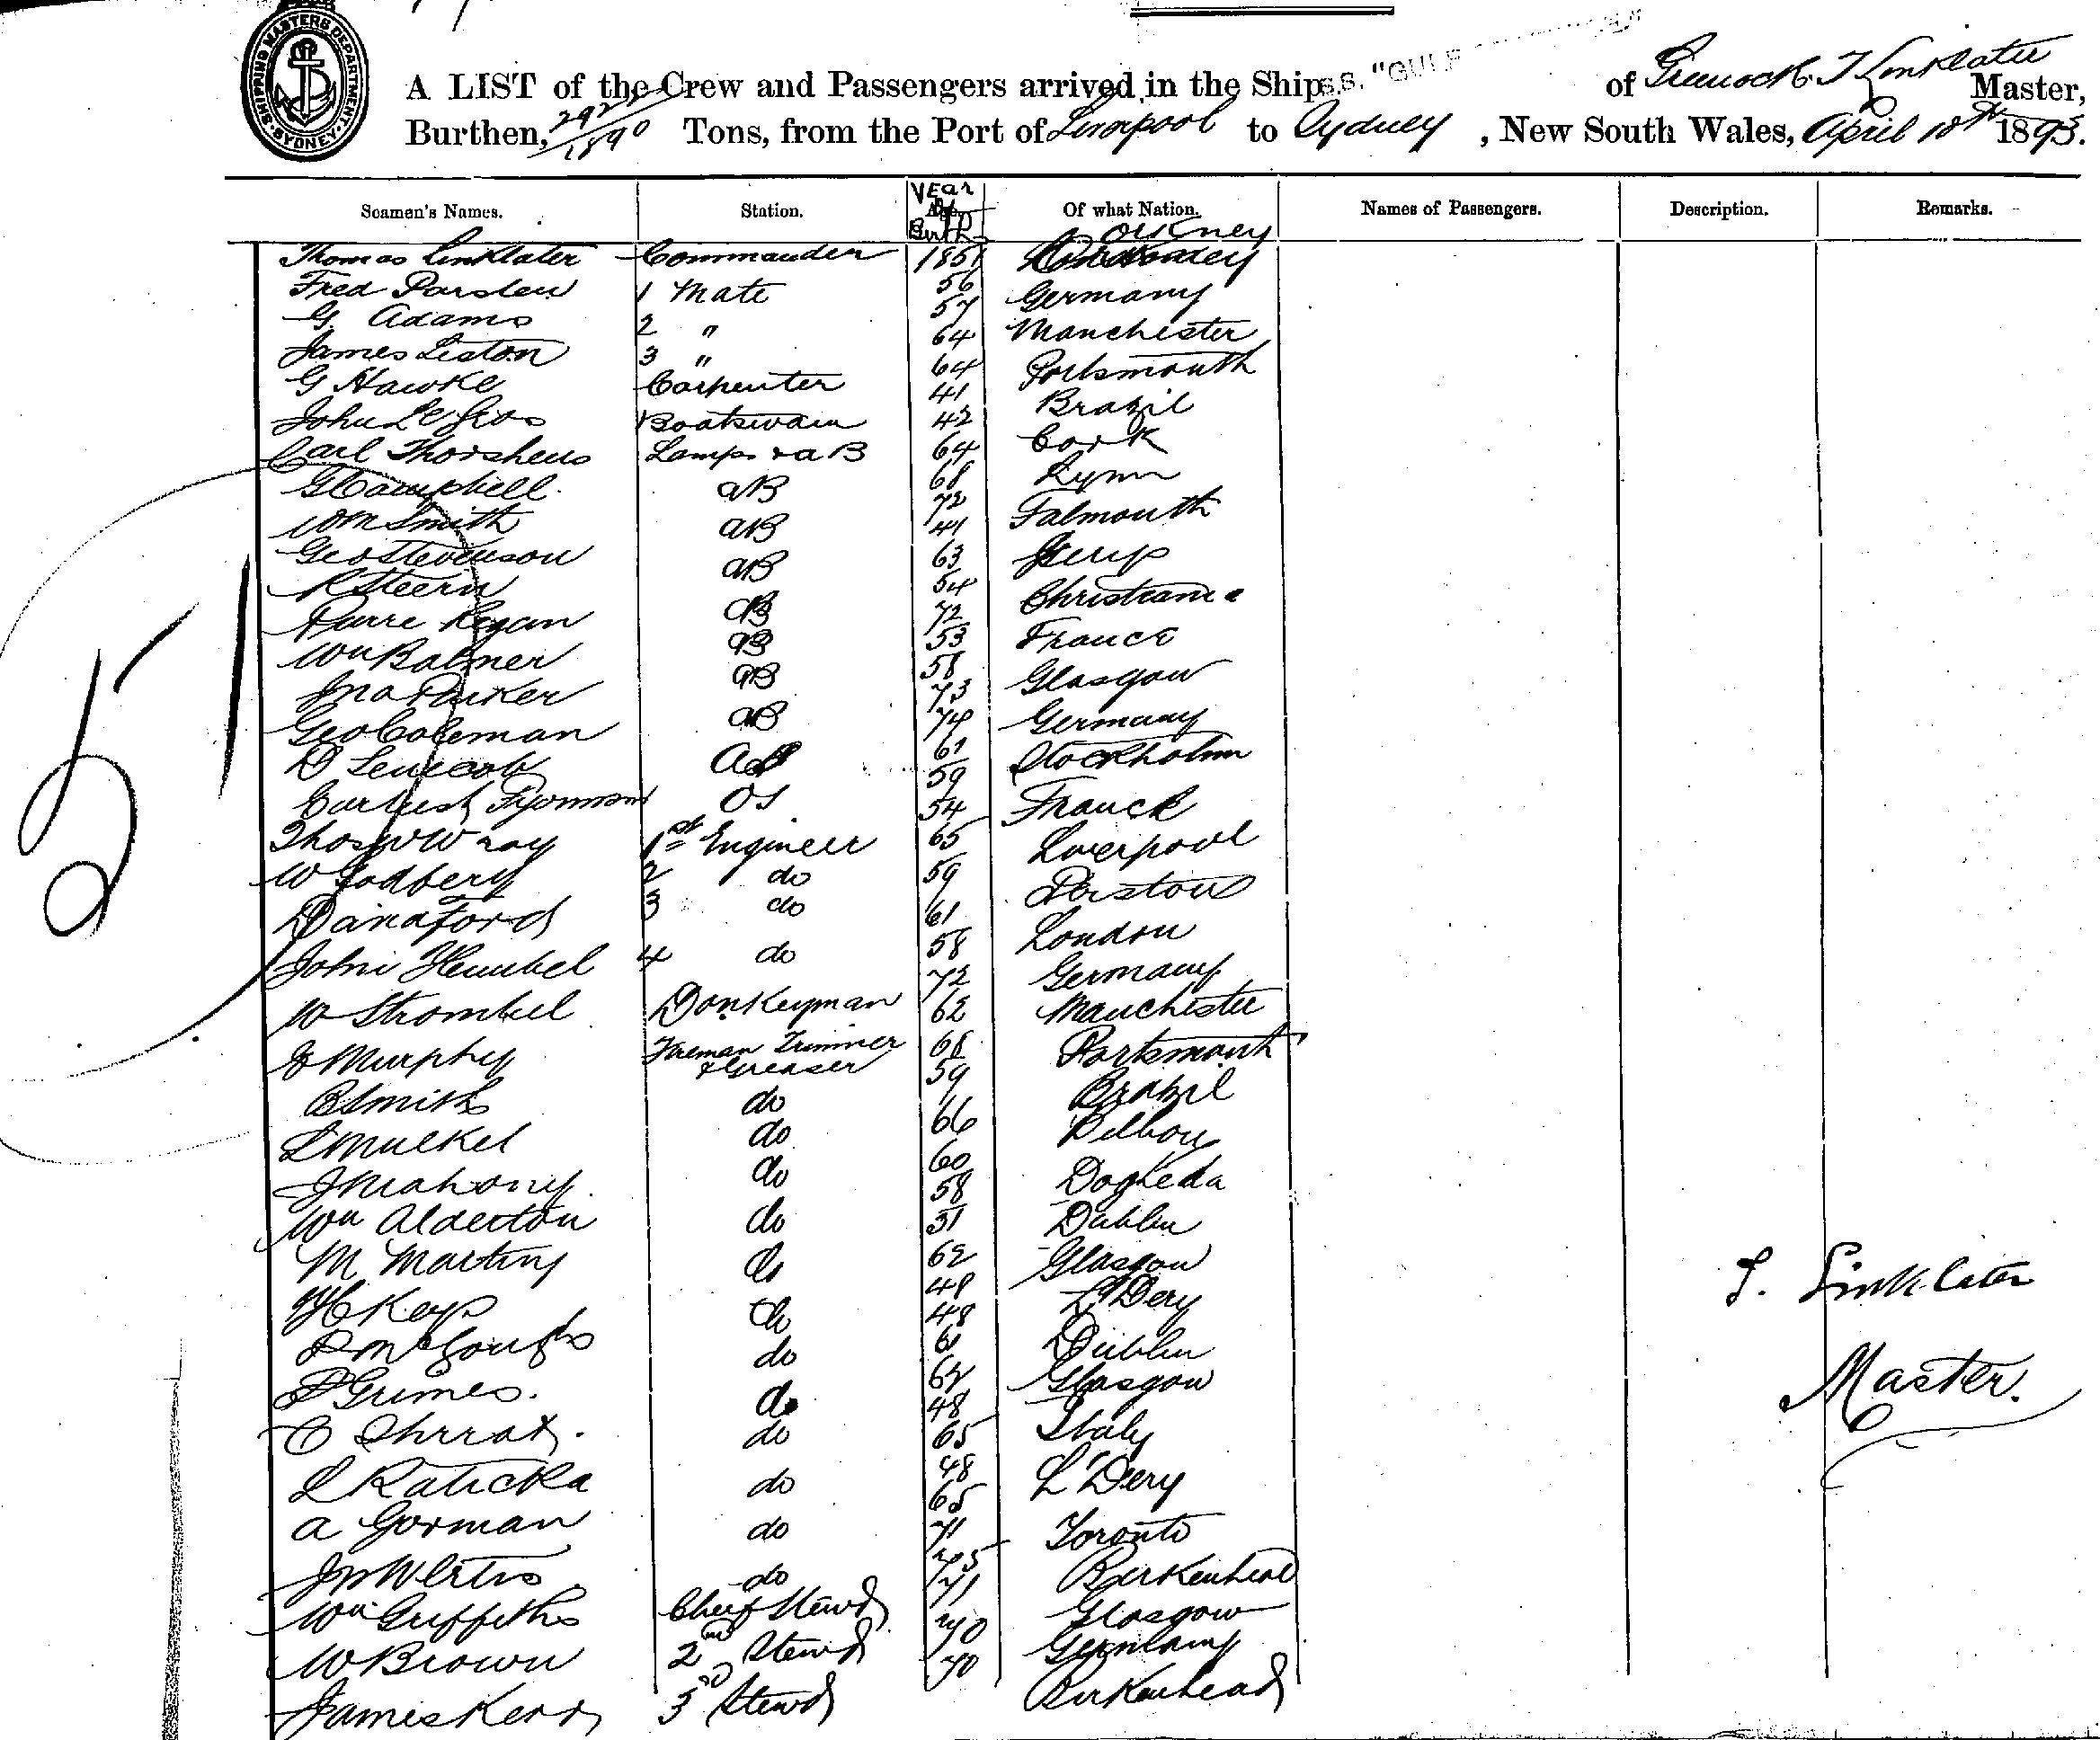 SHIPPING MASTERS DEPARTMENT SYDNEY
A LIST of the Crew and Passengers arrived in the Ship S.S. "GULF of Greenock T Linklater Master,
Burthen, 1890 Tons, from the Port of Liverpool to Sydney, New South Wales, April 10th 1893.
Seamen's Names. Station. Year of Birth Of what Nation. Names of Passengers. Description. Remarks.
Orkney
Thomas Linklater Commander 1851
Fred Parslew 1 Mate 56 Germany
G. Adams 2 " 57 Manchester
James Liston 3 " 64 Portsmouth
G Hawke Carpenter 64 Brazil
John Le Gros Boatswain 41 Cork
Carl Thorshens Lamps & aB 42 Lynn
G Campbell aB 64 Falmouth
Wm Smith aB 68
Geo Stevenson aB 72 Christiania
R Steern aB 41 France
Pierre Regan aB 63 Glasgow
Wm Balmer aB 54 Germany
Jno Parker aB 72 Stockholm
Geo Coleman 53 France
D 58 Liverpool
OS 73
Thos W Wray 1st Engineer 74 London
W Godbery 2 do 61 Germany
Danaford 3 do 59 Manchester
John 4 do 54 Portsmouth
W Strombel Donkeyman 65 Brazil
J Murphy Fireman Trimmer & Greaser 59
B Smith do 61 Dogheda
L Muckel do 58 Dublin
J Mahony do 72 Glasgow
Wm Alderton do 62 L'Dery
M Martin do 68 Dublin
Keys do 59 Glasgow
McGough do 66 Italy
P Grimes. do 60 L'Dery
C do 58 Toronto
L Raticka do 51 Birkenhead
a Gorman do 62 Glasgow
do 48 Germany
Wm Griffiths Chief Stewd 48 Birkenhead
W Brown 2nd Stewd 61
James Kerr 3rd Stewd 62
48
65
48
65
71
75
71
70
70
T. Linklater
Master.
51